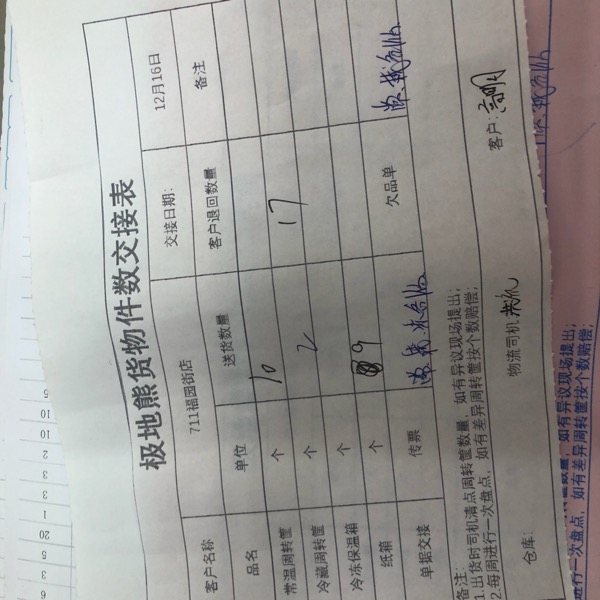 极地熊货物件数交接表
客户名称 711福园街店 交接日期: 12月16日
品名 单位 送货数量 客户退回数量 备注
常温周转筐 个 10
冷藏周转筐 个 2 17
冷冻保温箱 个
纸箱 个 9
单据交接 传票 欠品单
备注:
1.出货时司机清点周转筐数量,如有异议现场提出;
2.每周进行一次盘点,如有差异周转筐按个数赔偿;
仓库: 物流司机 客户:
如有异议现场提出;
进行一次盘点,如有差异周转筐按个数赔偿;
5
10
10
2
3
3
1
20
5
3
6